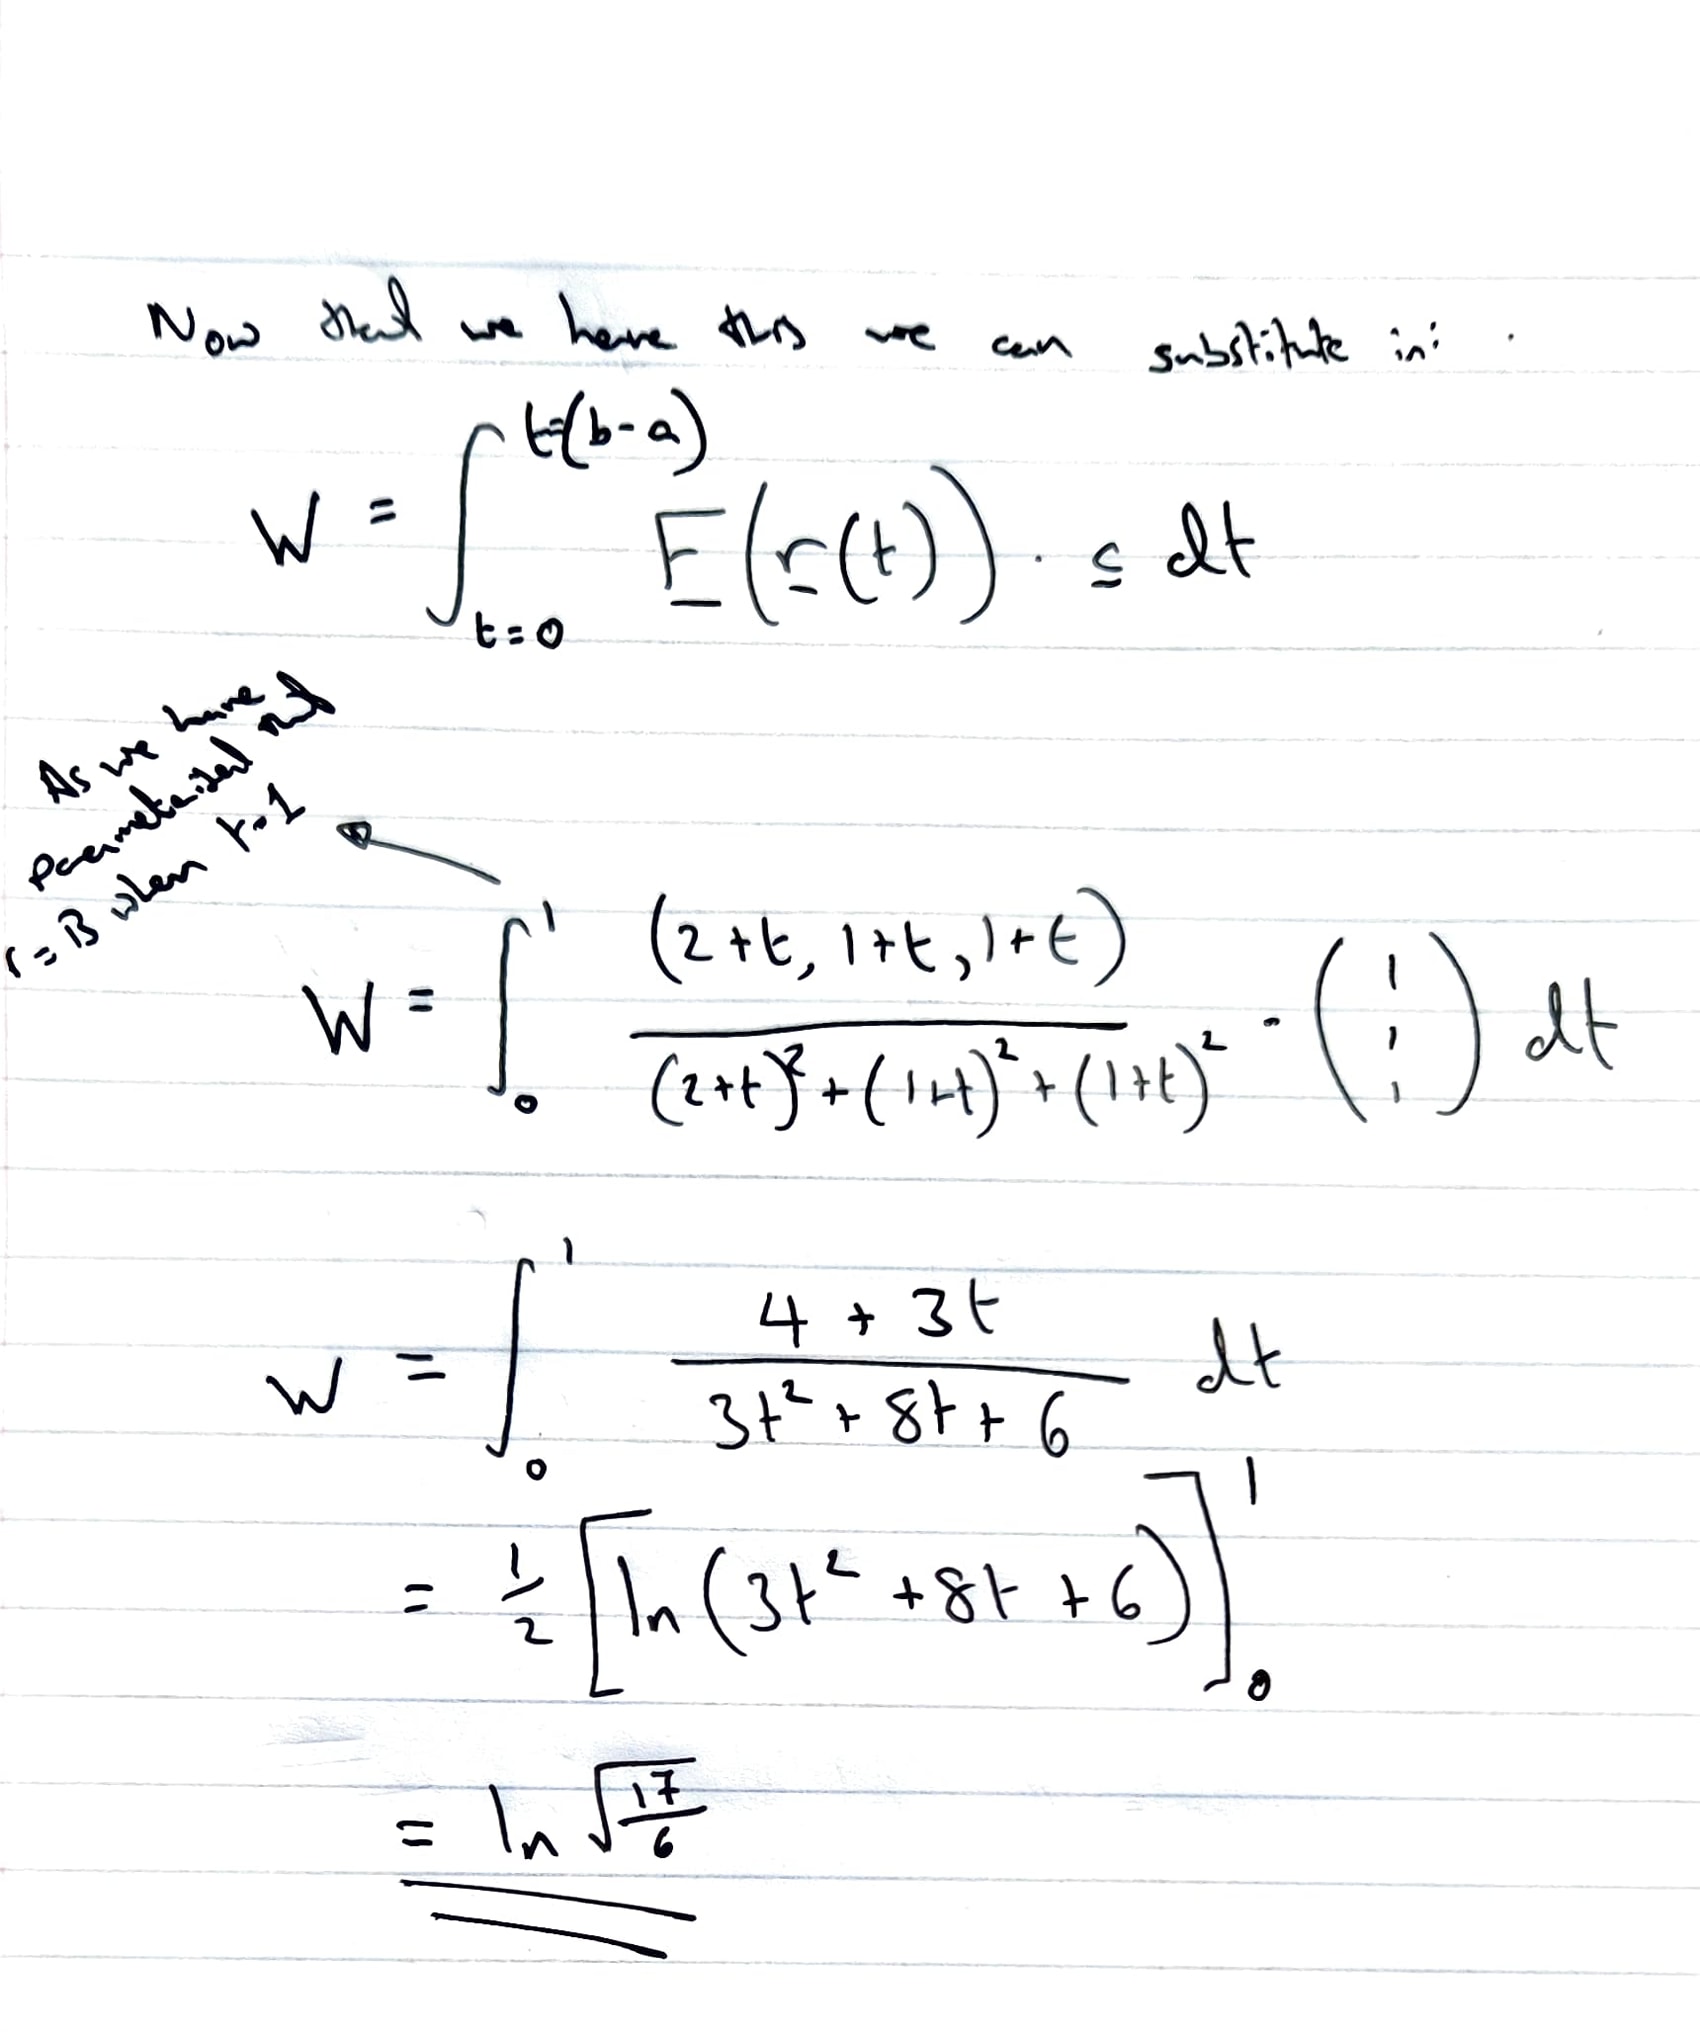 Now that we have this we can substitute in:
W = ∫_{t=0}^{t=(b-a)} F(r(t)) · c dt
As we have
parametarized out
r = B when r=1
W = ∫_0^1 (2+t, 1+t, 1+t) / ((2+t)² + (1+t)² + (1+t)²) · (1 1 1) dt
W = ∫_0^1 (4 + 3t) / (3t² + 8t + 6) dt
= 1/2 [ln(3t² + 8t + 6)]_0^1
= ln √(17/6)